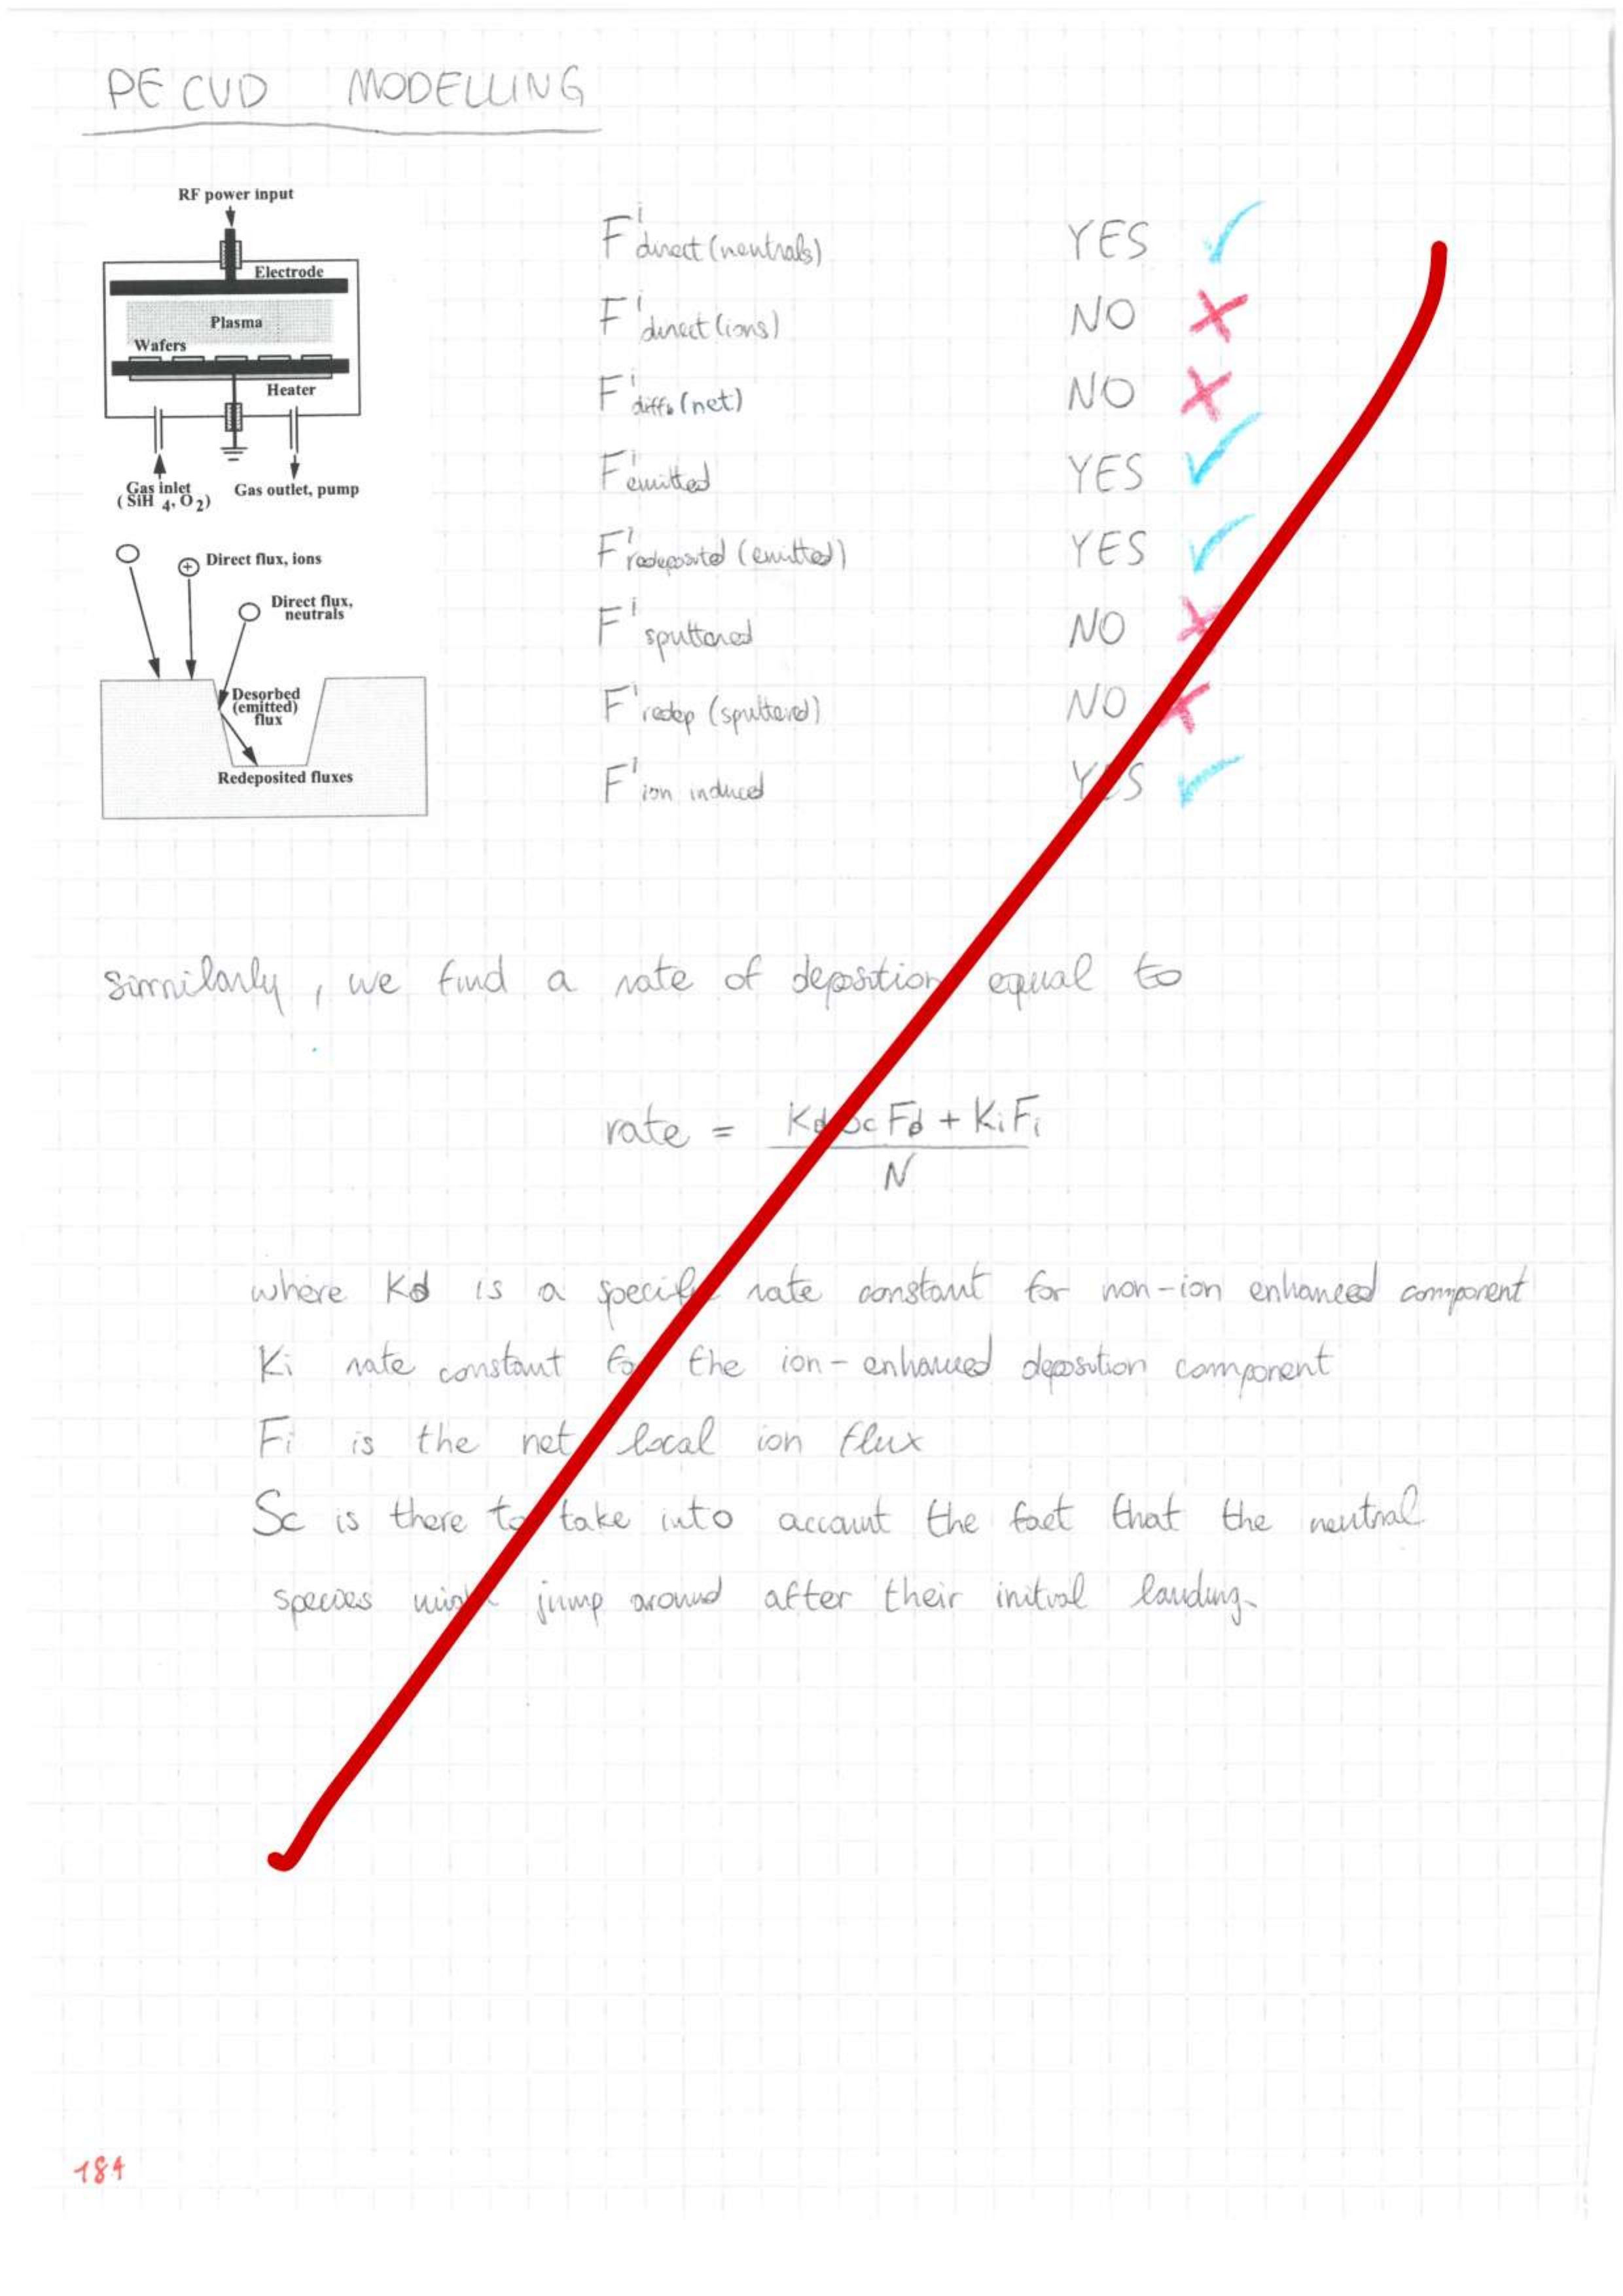 PE CVD MODELLING
RF power input
Electrode
Plasma
Wafers
Heater
Gas inlet
(SiH 4, O 2)
Gas outlet, pump
Direct flux, ions
Direct flux,
neutrals
Desorbed
(emitted)
flux
Redeposited fluxes
F^i direct (neutrals) YES ✓
F^i direct (ions) NO ✗
F^i diff. (net) NO ✗
F^i emitted YES ✓
F^i redeposited (emitted) YES ✓
F^i sputtered NO ✗
F^i redep (sputtered) NO ✗
F^i ion induced YES ✓
similarly, we find a rate of deposition equal to
rate = (Kd Sc Fd + Ki Fi) / N
where Kd is a specific rate constant for non-ion enhanced component
Ki rate constant for the ion-enhanced deposition component
Fi is the net local ion flux
Sc is there to take into account the fact that the neutral
species might jump around after their initial landing.
184